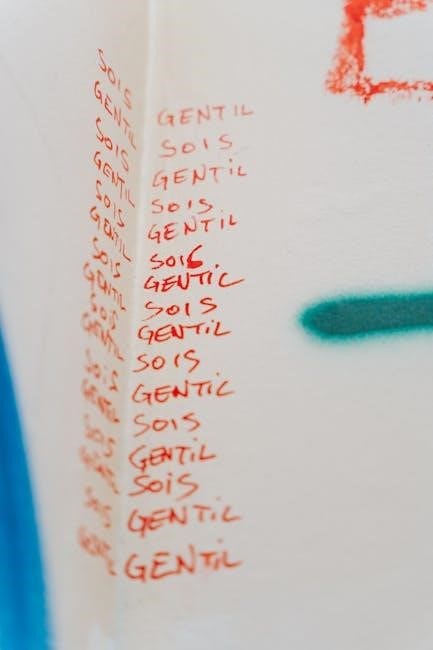 SOIS
GENTIL
SOIS
GENTIL
SOIS
GENTIL
SOIS
GENTIL
SOIS
GENTIL
SOIS
GENTIL
SOIS
GENTIL
SOIS
GENTIL
GENTIL
SOIS
GENTIL
SOIS
GENTIL
SOIS
GENTIL
SOIS
GENTIL
SOIS
GENTIL
SOIS
GENTIL
SOIS
GENTIL
GENTIL